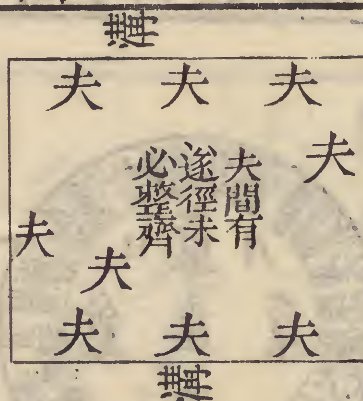 溝
夫 夫 夫
夫
夫間有
遂徑未
必整齊
夫
夫
夫 夫 夫
溝